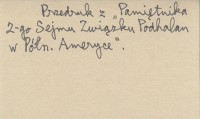 Przedruk z „Pamiętnika
2-go Sejmu Związku Podhalan
w Półn. Ameryce".